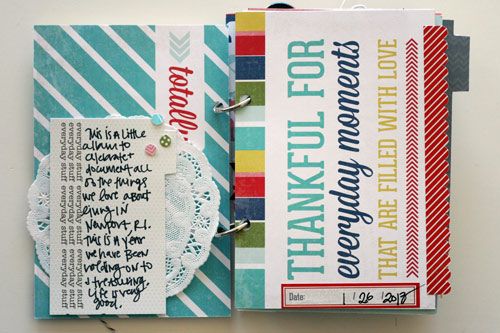 totally
everyday stuff everyday stuff everyday stuff everyday stuff
This is a little
album to
celebrate +
document all
of the things
we love about
living in
Newport R.I.
This is a year
we have been
holding on to
+ treasuring.
Life is very
good.
THANKFUL FOR
everyday moments
THAT ARE FILLED WITH LOVE
Date: 1 26 2013